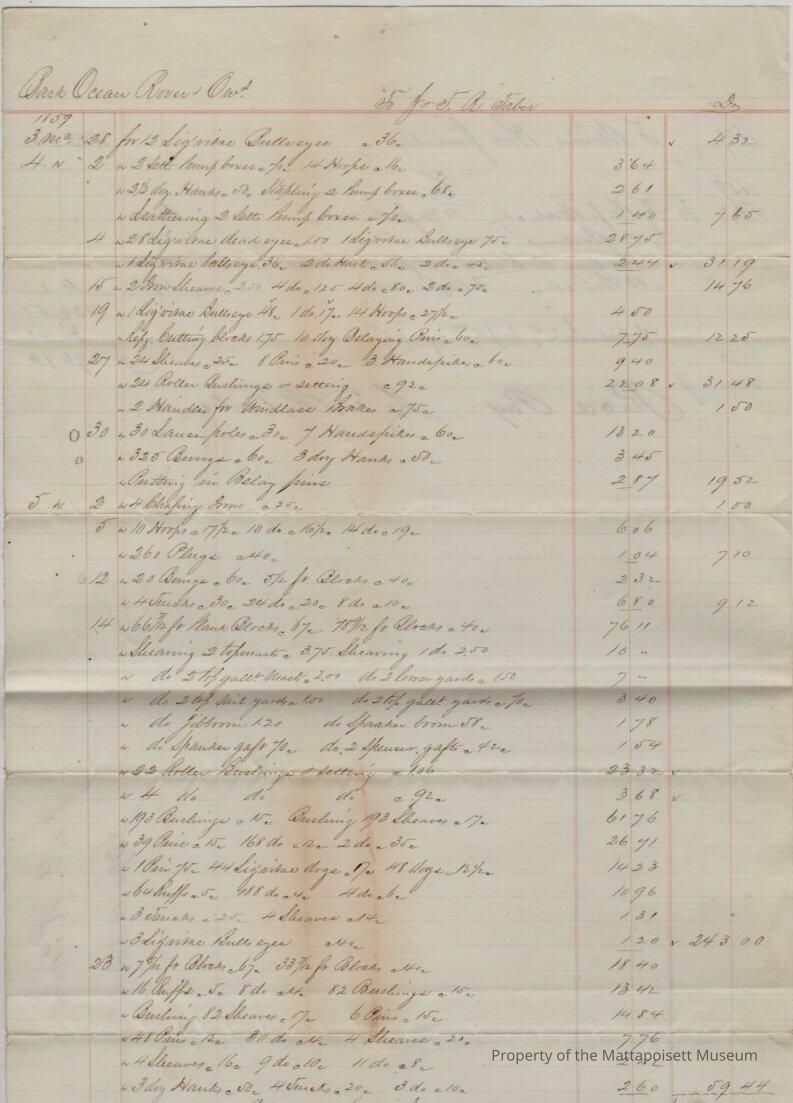 Bark Ocean Rover & Ows To J & T. R. Taber Dr
1859
3 mo 28 for 12 Lig'vitae Bullseyes 36c 4 32
4 " 2 " 2 Sett Pump boxes 14 Hoops 16c 3 64
" 2½ doz. Hanks 50c Stapling 2 Pump boxes 68c 2 61
" Leathering 2 Setts Pump boxes 70c 1 40 7 65
4 " 28 Lig'vitae dead eyes 100 1 Lig'vitae Bullseye 75c 28 75
" 1 Lig'vitae bullseye 36c 2 do 2 do 48c 2 44 31 19
15 " 2 Iron Sheaves 2.50 4 do 125 4 do 80c 2 do 70c 14 76
19 " 1 Lig'vitae Bullseye 48c 1 do 14 Hoops 27½c 4 50
" Repg. Cutting blocks 175 10 doz Belaying Pins 60c 7 75 12 25
27 " 24 Sheaves 25c 8 Pins 20c 3 Handspikes 60c 9 40
" 24 Roller Bushings & setting 92c 22 08 31 48
" 2 Handles for Windlass Brakes 75c 1 50
30 " 30 Lance poles 30c 7 Handspikes 60c 13 20
" 325 Bungs 60c 3 doz Hanks 50c 3 45
" Putting in Belay pins 2 87 19 52
5 " 2 " 4 Chafing Irons 25c 1 00
5 " 10 Hoops 17½c 10 do 16½c 14 do 19c 6 06
" 260 Plugs 40c 1 04 7 10
12 " 20 Bungs 60c 5½ ft. Blocks 40c 2 32
" 4 Trucks 30c 24 do 20c 8 do 10c 6 80 9 12
14 " 66½ ft Blocks 67c 78½ ft Blocks 40c 76 11
" Shearing 2 topmasts 3.75 Shearing 1 do 2.50 10 "
" do 2 top gallt Mast 2.00 do 2 lower yards 150 7 "
" do 2 top sail yards 100 do 2 top gallt yards 70c 3 40
" do Jibboom 1.20 do Spanker boom 58c 1 78
" do Spanker gaft 70c do 2 Spencer gafts 42c 1 54
" 22 Roller Bushings & setting 106 23 32
" 4 do do do 92c 3 68
" 193 Bushings 15c Bushing 193 Sheaves 17c 61 76
" 39 Pins 15c 168 do 12c 2 do 35c 26 71
" 1 Pin 75c 44 Lig'vitae dogs 17c 48 dogs 12½c 14 23
" 64 Ruffs 5c 188 do 4c 4 do 6c 10 96
" 3 Trucks 25c 4 Sheaves 14c 1 31
" 3 Lig'vitae Bulls eyes 40c 1 20 243 00
23 " 7½ ft Blocks 67c 33½ ft Blocks 40c 18 40
" 16 Ruffs 5c 8 do 4c 82 Bushings 15c 13 42
" Bushing 82 Sheaves 17c 6 Pins 15c 14 84
" 48 Pins 12c 30 do 4c 4 Sheaves 20c 7 76
" 4 Sheaves 16c 9 do 10c 11 do 8c
" 3 doz Hanks 50c 4 Trucks 20c 3 do 10c 2 60 59 44
Property of the Mattapoisett Museum